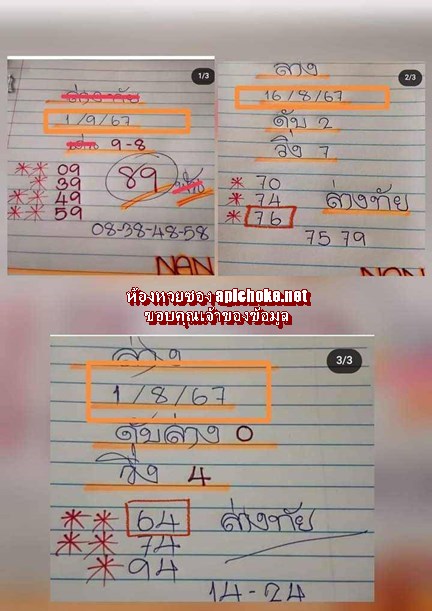 1/3
ล่างทัย
1/9/67
เด่น 9-8
** 09
* 39
** 49
** 59
89
08-38-48-58
NAN
2/3
ล่าง
16/8/67
ดับ 2
วิ่ง 7
* 70
* 74
* 76
ล่างทัย
75 79
NAN
ห้องหวยซอง apichoke.net
ขอบคุณเจ้าของข้อมูล
3/3
ล่าง
1/8/67
ดับล่าง 0
วิ่ง 4
** 64
** 74
* 94
ล่างทัย
14-24